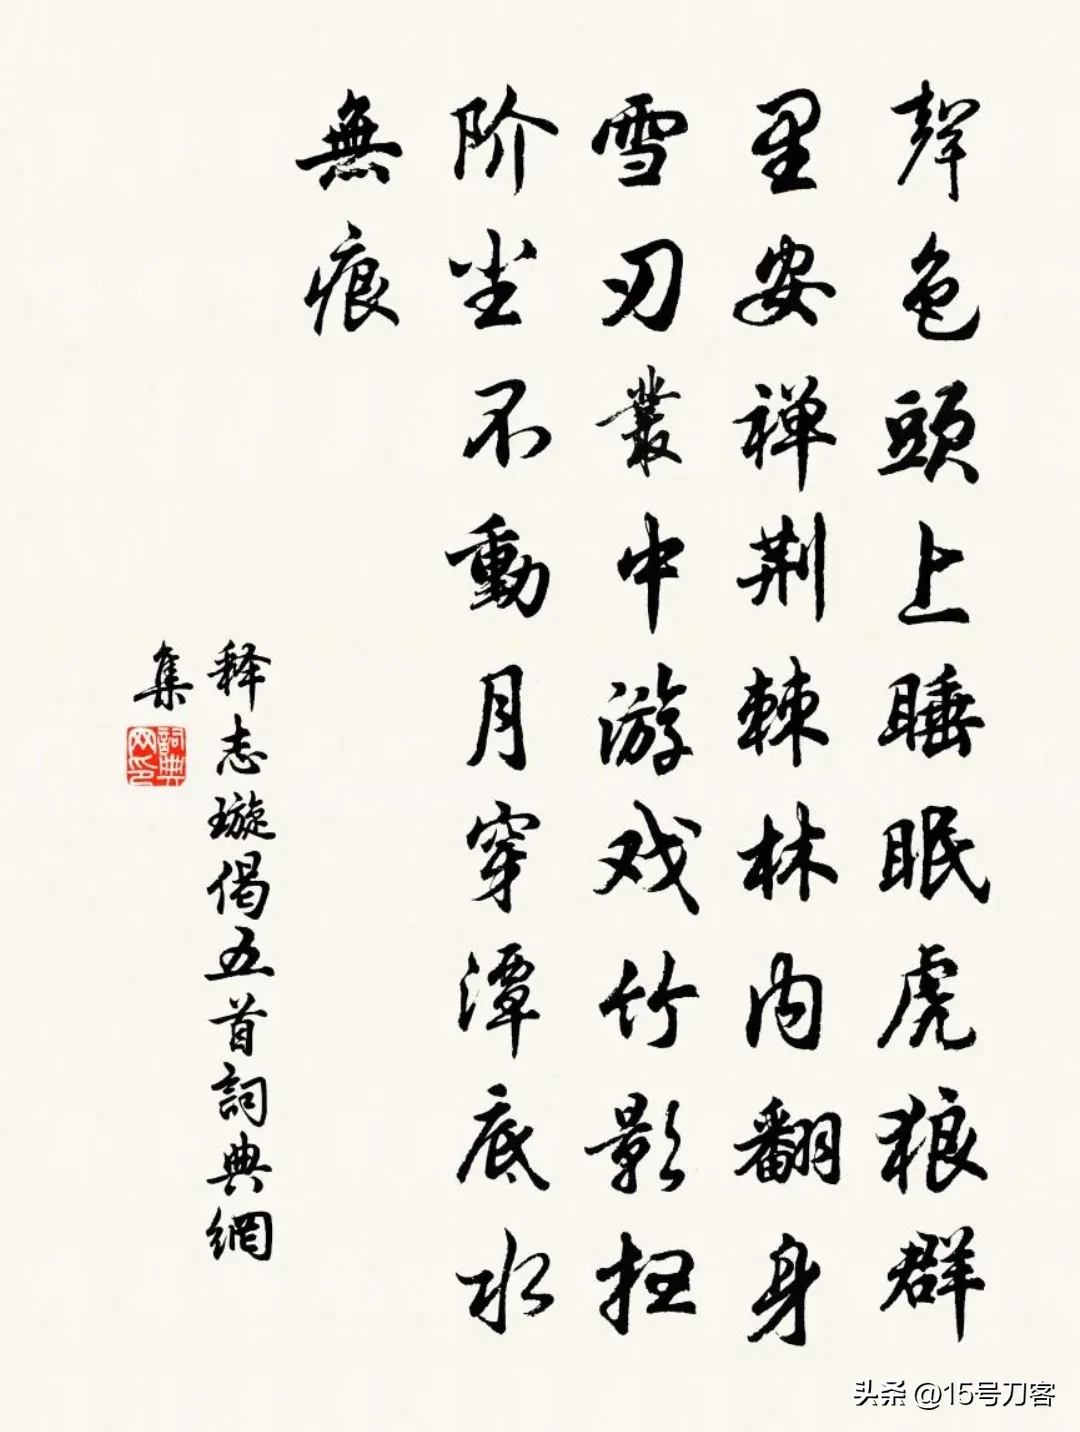 聲色頭上睡眠虎狼群
里安禅荆棘林内翻身
雪刃叢中游戏竹影扫
阶尘不動月穿潭底水
無痕
释志璇偈五首詞典網
集
詞典
网印
头条 @15号刀客